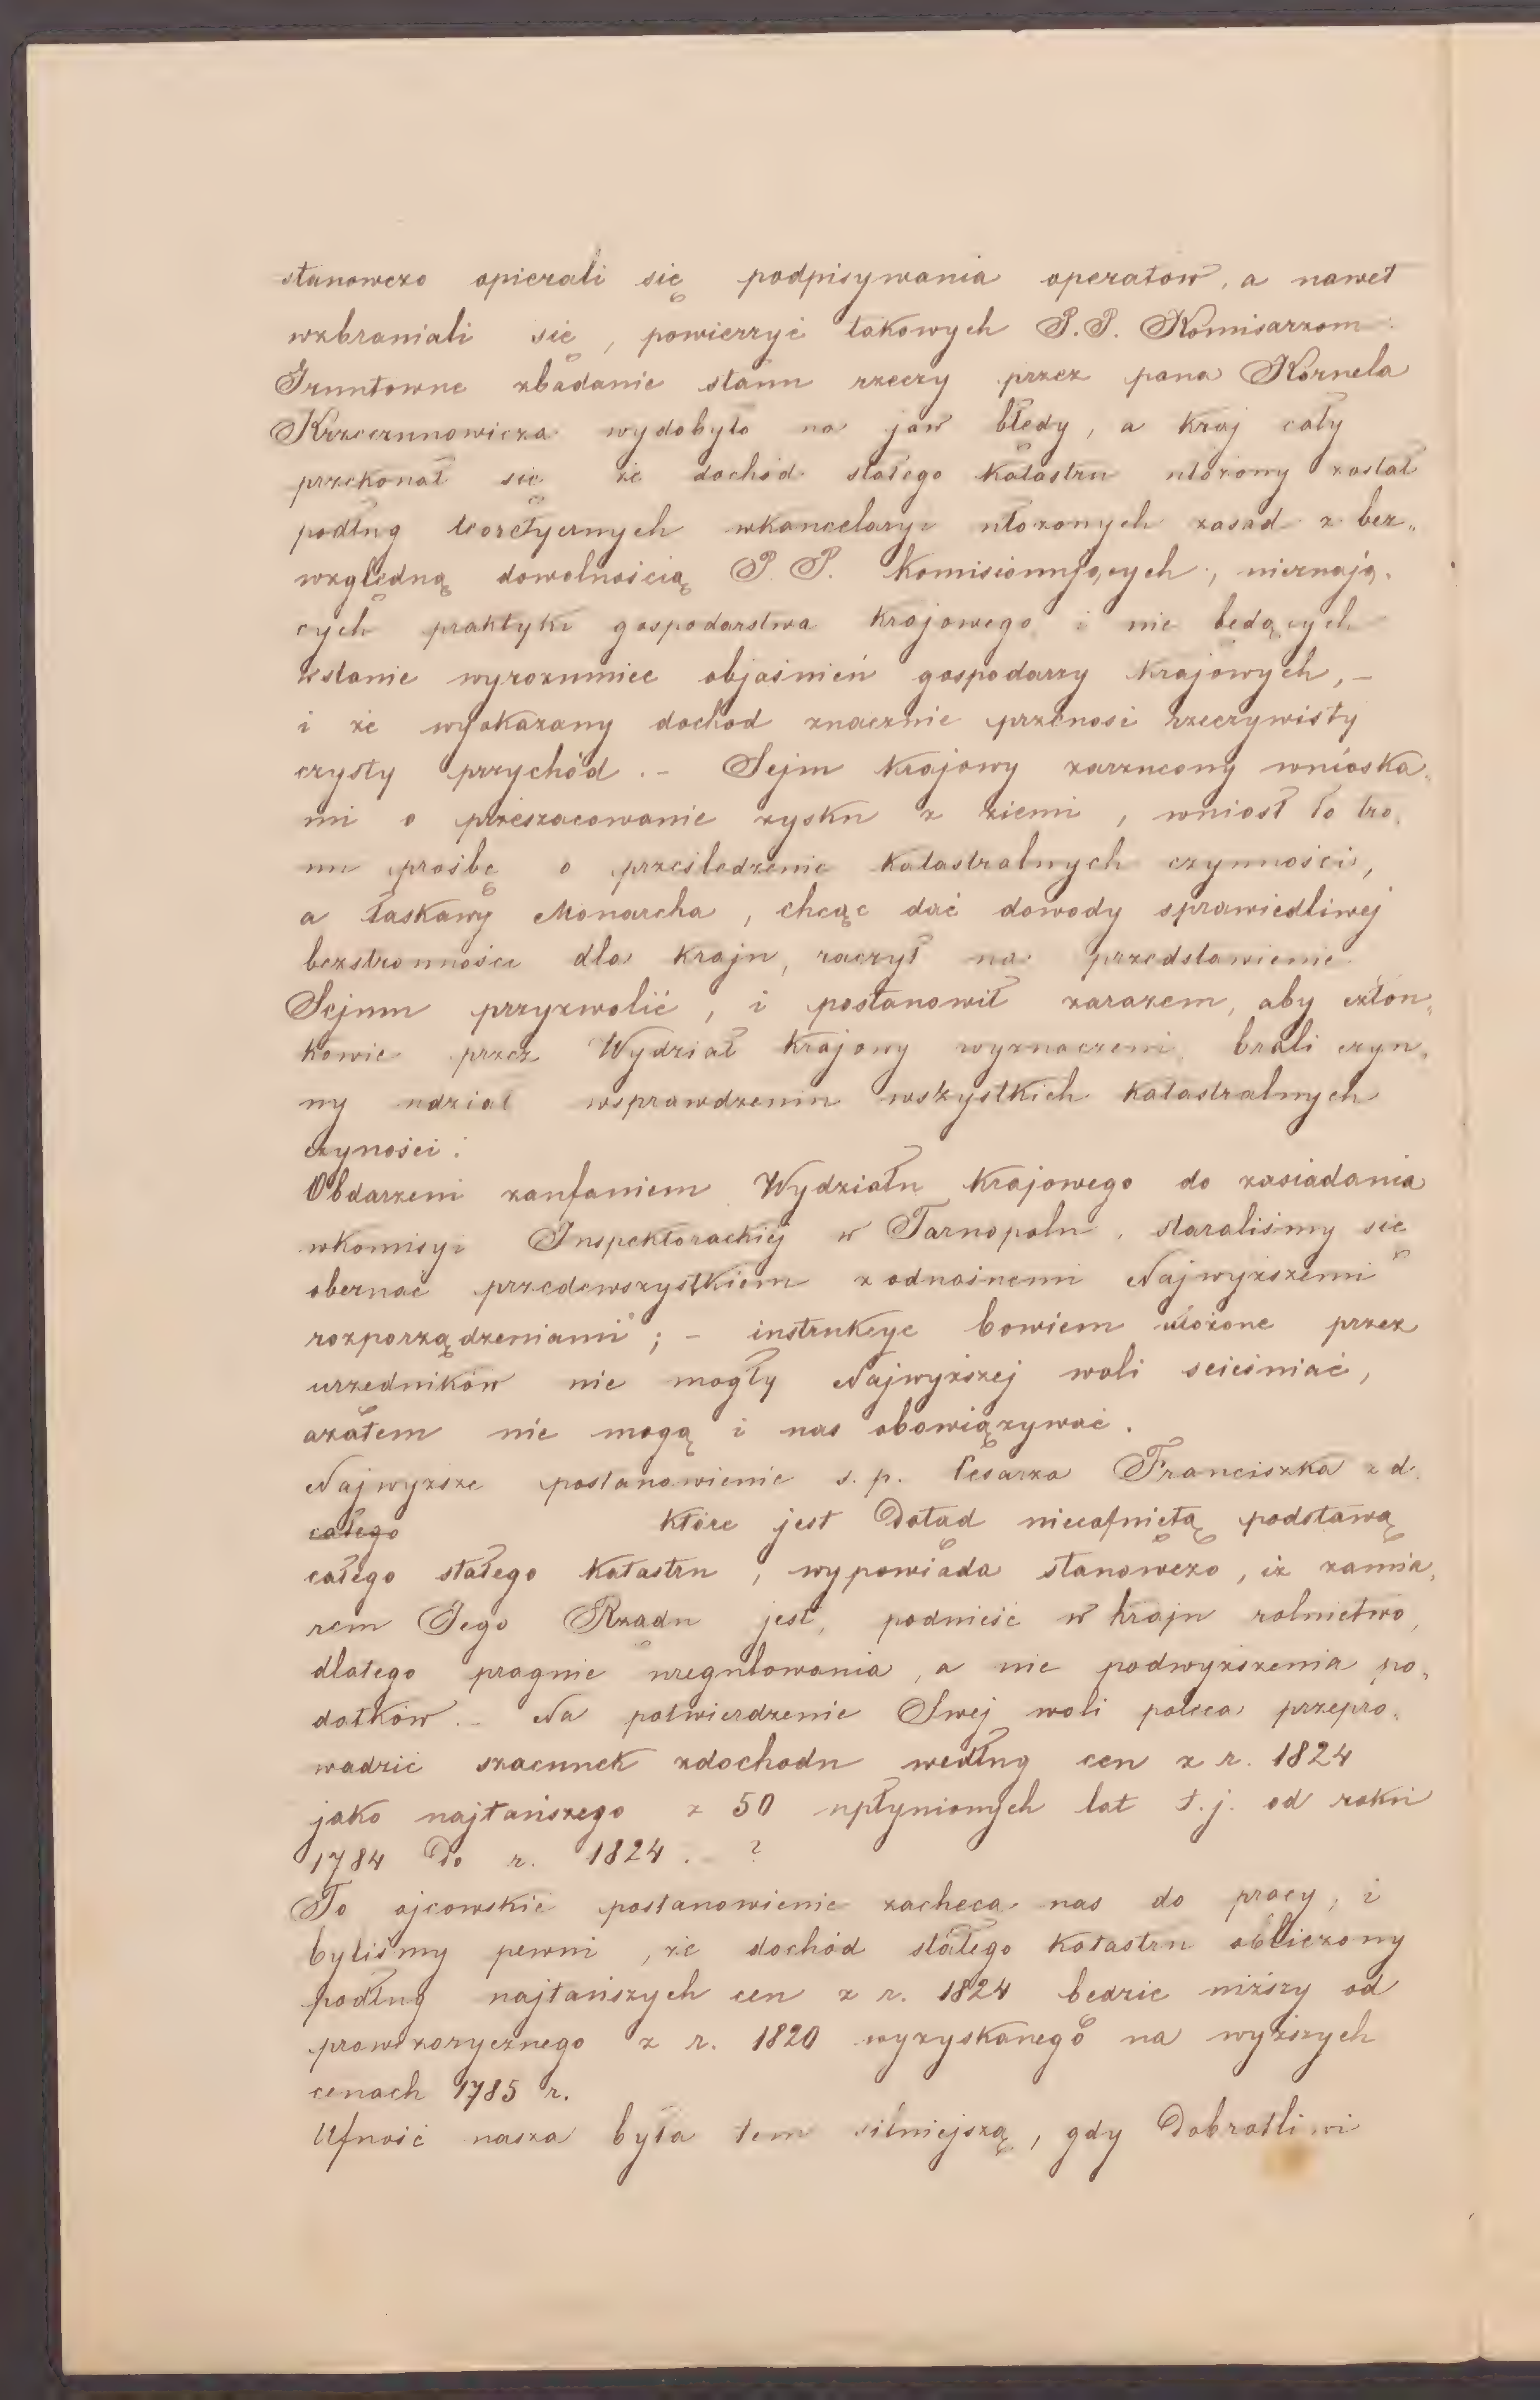 stanowczo opierali się podpisywania operatów, a nawet
wzbraniali się, powierzyć takowych P.P. Komisarzom.
Gruntowne zbadanie stanu rzeczy przez pana Kornela
Krzeczunowicza wydobyło na jaw błędy, a kraj cały
przekonał się że dochód stałego Katastru ułożony został
podług teoretycznych wkancelaryi ułożonych zasad z bez„
względną dowolnością P. P. Komisionujących, nieznają„
cych praktyki gospodarstwa krajowego i nie będących
wstanie wyrozumieć objaśnień gospodarzy krajowych, –
i że wykazany dochód znacznie przenosi rzeczywisty
czysty przychód. – Sejm krajowy zarzucony wnioska„
mi o przeszacowanie zysku z ziemi, wniósł to tro„
nu prośbę o prześledzenie katastralnych czynności,
a łaskawy Monarcha, chcąc dać dowody sprawiedliwej
bezstronności dla kraju, raczył na przedstawienie
Sejmu przyzwolić, i postanowił zarazem, aby człon„
kowie przez Wydział krajowy wyznaczeni, brali czyn„
ny udział wsprawdzeniu wszystkich katastralnych
czyności.
Obdarzeni zaufaniem Wydziału krajowego do zasiadania
wkomisyi Inspektorackiej w Tarnopolu, staraliśmy się
obeznać przedewszystkiem zodnośnemi Najwyższemi
rozporządzeniami; – instrukcye bowiem ułożone przez
urzędników nie mogły Najwyższej woli ścieśniać,
azatem nie mogą i nas obowiązywać.
Najwyższe postanowienie s. p. Cesarza Franciszka z d.
całego które jest Dotąd niecofniętą podstawą
całego stałego Katastru, wypowiada stanowczo, iż zamia„
rem Jego Rządu jest, podnieść w kraju rolnictwo,
dlatego pragnie uregulowania, a nie podwyższenia po„
datków. – Na potwierdzenie Swej woli poleca przepro„
wadzić szacunek zdochodu według cen z r. 1824
jako najtańszego z 50 upłynionych lat t.j. od roku
1784 Do r. 1824. – ?
To ojcowskie postanowienie zachęca nas do pracy, i
byliśmy pewni, że dochód stałego Katastru obliczony
podług najtańszych cen z r. 1824 będzie niższy od
prowizorycznego z r. 1820 wyzyskanego na wyższych
cenach 1785 r.
Ufność nasza była tem silniejszą, gdy Dobrotliwi